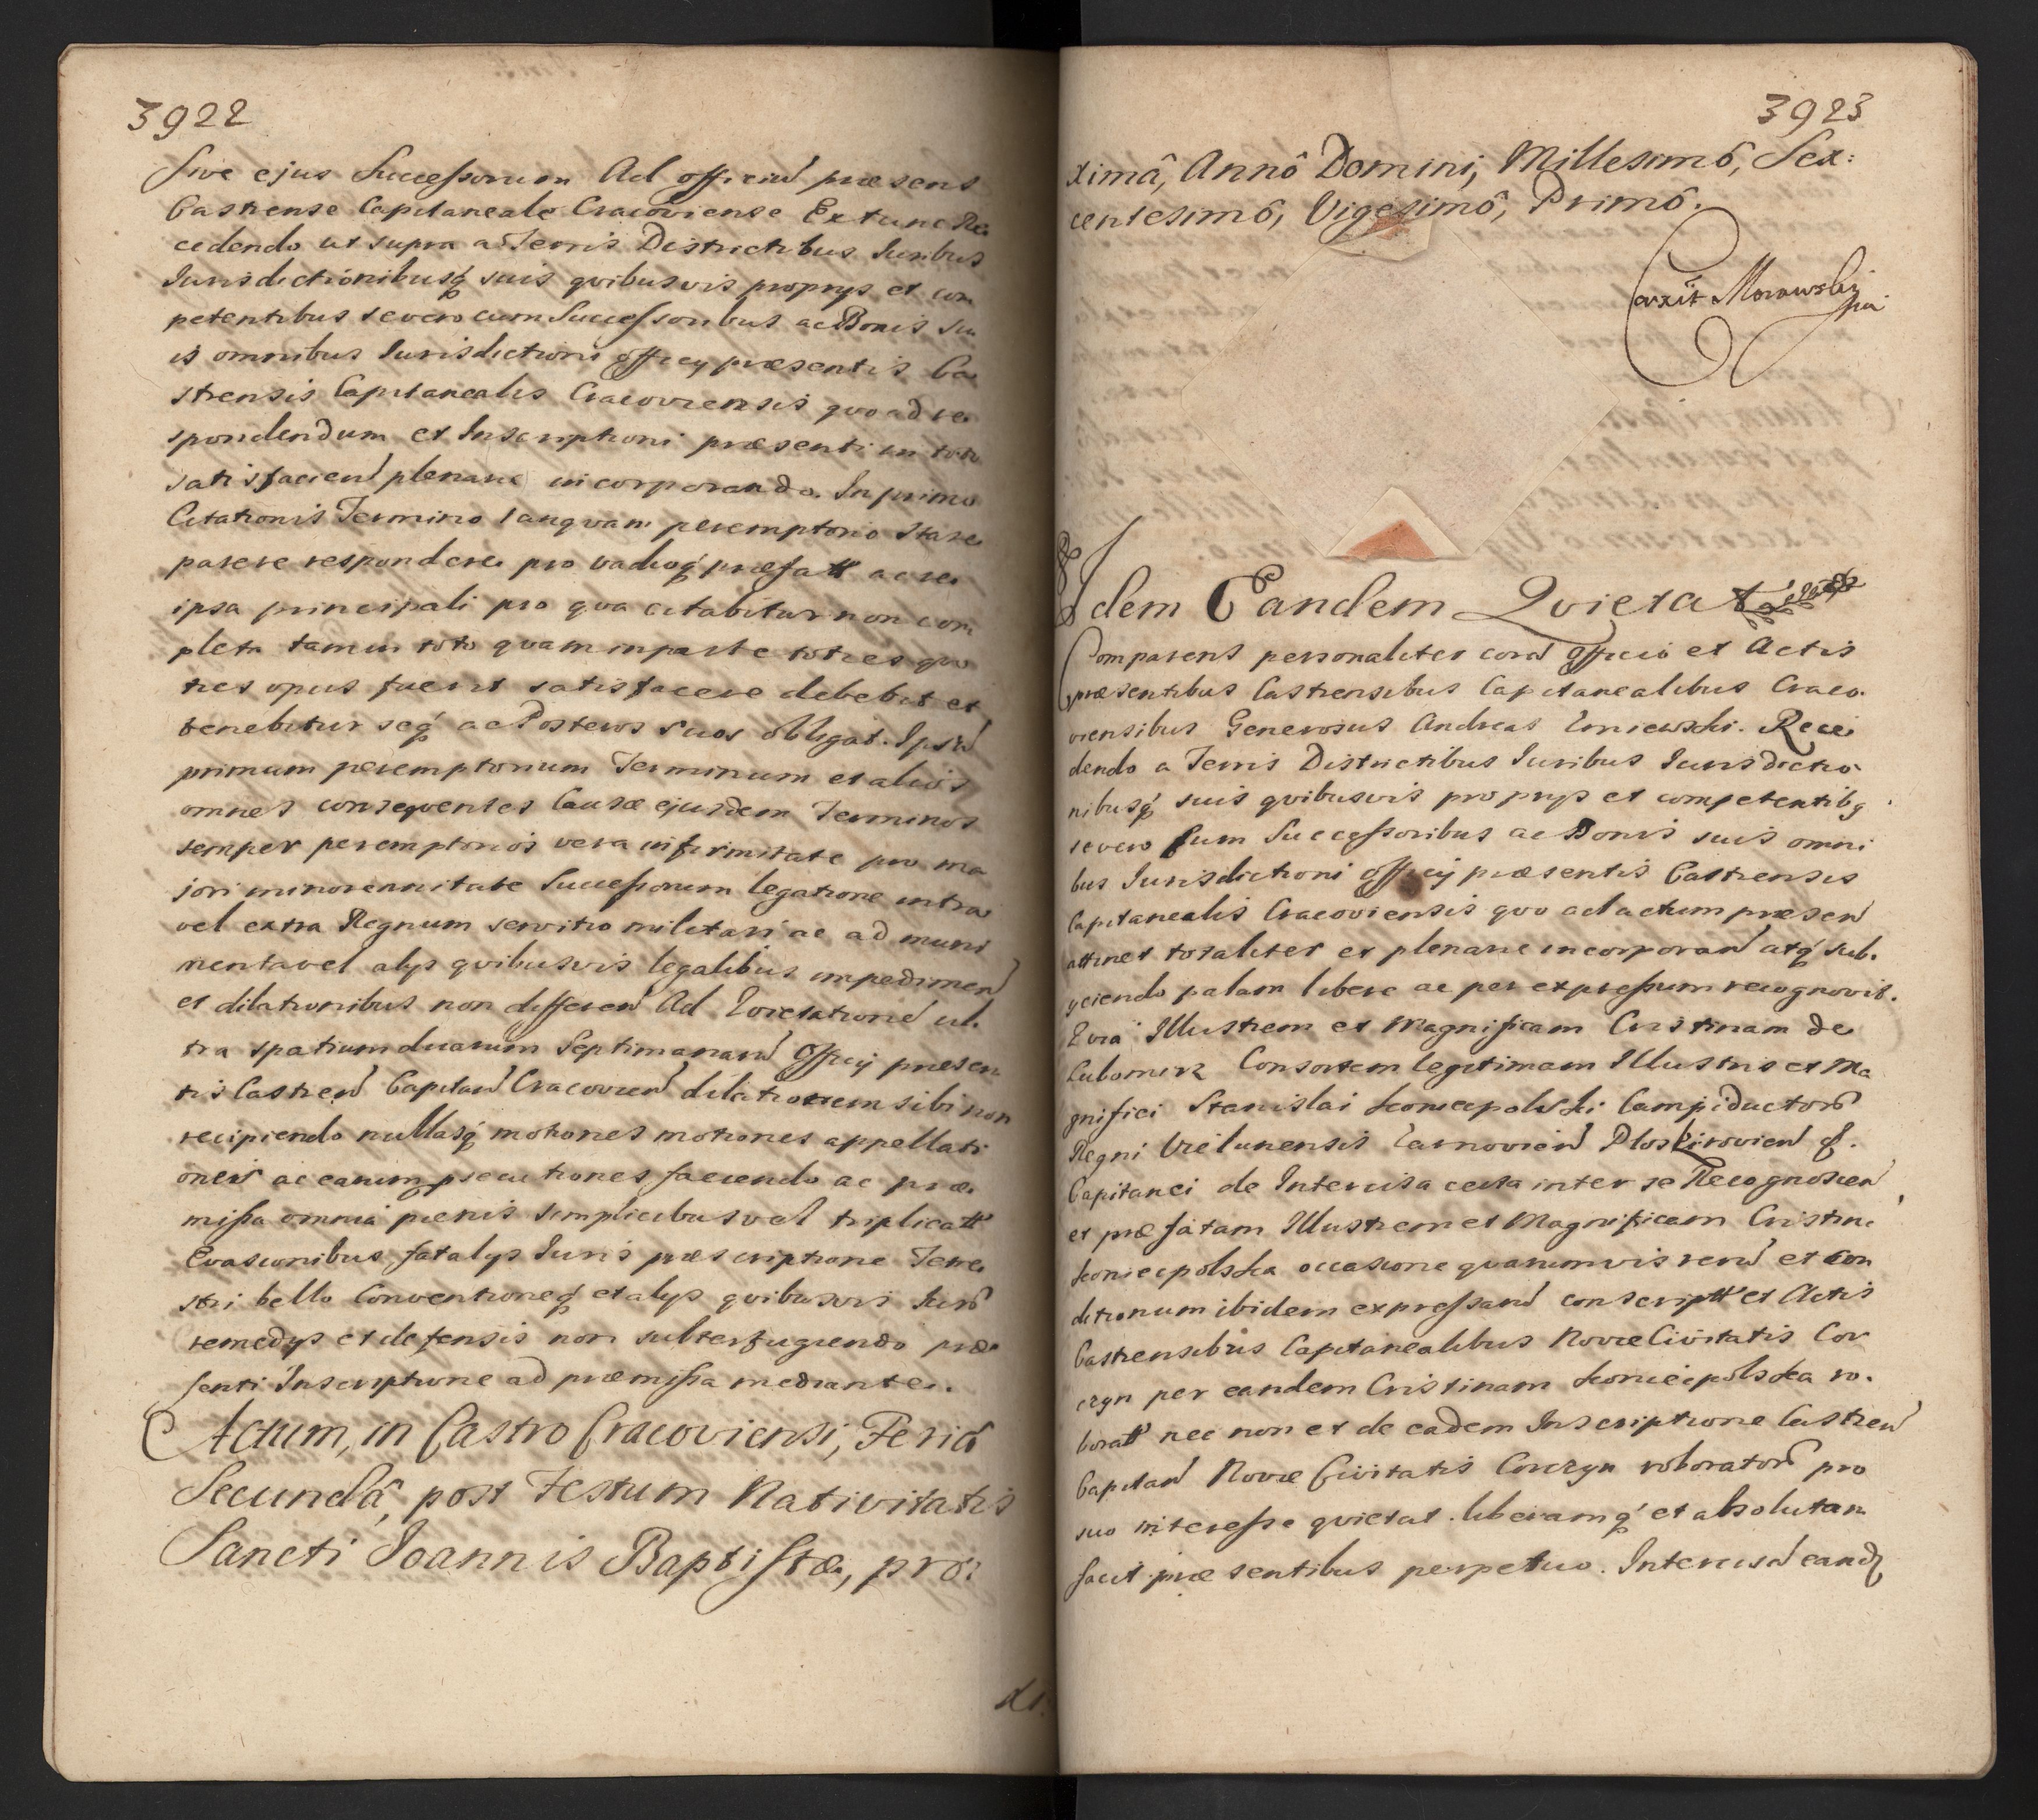 3922
Sive ejus Successorum Ad officiũ præsens
Castrense Capitaneale Cracoviense Extunc Re
cedendo ut supra a Terris Districtibus Iuribus
Iurisdictionibusq́ suis qvibusvis proprys et com
petentibus se vero cum Successoribus ac Bonis su
is omnibus Iurisdictioni officy præsentis Ca
strensis Capitanealis Cracoviensis qvo ad re
spondendum et Inscriptioni præsenti in toto
satisfacien̄ plenarie incorporando. In primo
Citationis Termino tanqvam peremptorio stare
parere respondere pro vadioq́ præfatt ac re
ipsa principali pro qva citabitur non com
pleta tam in toto qvam in parte toties qvo
ties opus fuerit satisfacere debebit et
tenebitur seq́ ac Posteros suos obligat. Ipsũ
primum peremptorium Terminum et alios
omnes conseqventes Causæ ejusdem Terminos
semper peremptorios vera infirmitate pro ma
jori minorennitate Successorum legatione intra
vel extra Regnum servitio militari ac ad muni
menta vel alys qvibusvis legalibus impedimen̄
et dilationibus non differen̄ Ad Qvietationẽ ul.
tra spatium duarum Septimanarũ Officy præsen
tis Castren̄ Capitan̄ Cracovien̄ dilationem sibi non
recipiendo nullasq́ motiones motiones appellati
ones ac earum psecutiones faciendo ac præ
missa omnia pœnis simplicibus vel triplicatt
Evasionibus fatalys Iuris præscriptione Terre
stri bello Conventioneq́ et alys qvibusvis Iurĩ
remedys et defensis non subterfugiendo præ
senti Inscriptione ad præmissa mediante.
Actum, in Castro Cracoviensi, Feriâ
Secundâ, post Festum Nativitatis
Sancti Ioannis Baptistæ, pro:
xi:
3923
ximâ, Annô Domini, Millesimô, Sex:
centesimô, Vigesimô, Primô.
Correxit Morawski
mpa
Idem Eandem Qvietat
Comparens personaliter corã Officio et Actis
præsentibus Castrensibus Capitanealibus Craco
viensibus Generosus Andreas Urniewski. Rece
dendo a Terris Districtibus Iuribus Iurisdictio
nibusq́ suis qvibusvis proprys et competentibq
se vero Cum Successoribus ac Bonis suis omni
bus Iurisdictioni officy præsentis Castrensis
Capitanealis Cracoviensis qvo ad actum præsen̄
attinet totaliter et plenarie incorporan̄ atq́ sub.
yciendo palam libere ac per expressum recognovit.
Qvia Illustrem et Magnificam Cristinam de
Lubomirz Consortem legitimam Illustris et Ma
gnifici Stanislai Koniecpolski Campiductorĩ
Regni Vielunensis Tarnovien̄ Ploskirovien̄ &.
Capitanei de Intercisa certa inter se Recognoscen̄
et præfatam Illustrem et Magnificam Cristinã
Koniecpolska occasione qvarumvis rerũ et con
ditionum ibidem expressarũ conscriptt et Actis
Castrensibus Capitanealibus Novæ Civitatis Cor
czyn per eandem Cristinam Koniecpolska ro.
boratt nec non et de eadem Inscriptione Castren̄
Capitan̄ Novæ Civitatis Corczyn roboratorĩ pro
suo interesse qvietat. liberamq́ et absolutam
facit præsentibus perpetuo. Intercisã eandȝ